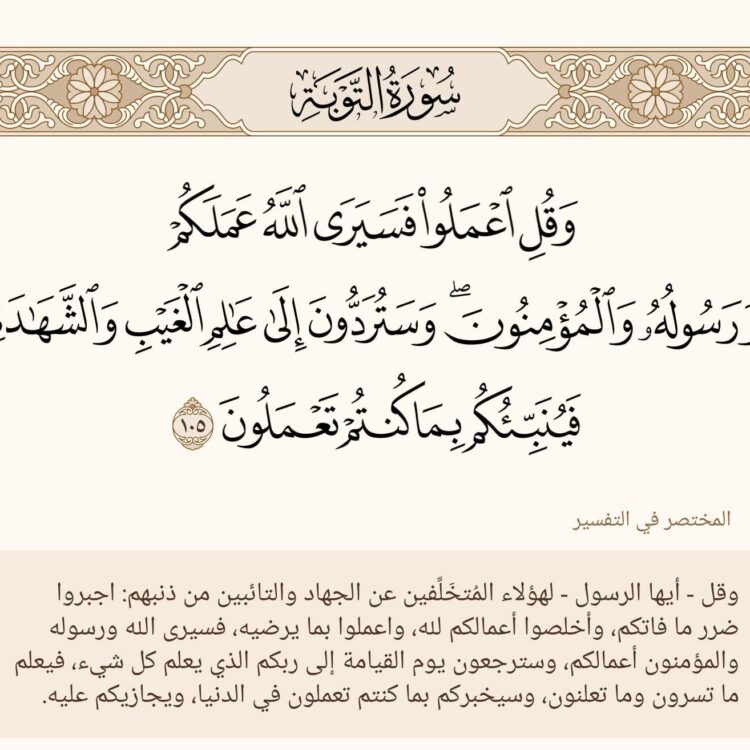 سُورَةُ التَّوۡبَةِ
وَقُلِ ٱعۡمَلُواْ فَسَيَرَى ٱللَّهُ عَمَلَكُمۡ
وَرَسُولُهُۥ وَٱلۡمُؤۡمِنُونَۖ وَسَتُرَدُّونَ إِلَىٰ عَٰلِمِ ٱلۡغَيۡبِ وَٱلشَّهَٰدَةِ
فَيُنَبِّئُكُم بِمَا كُنتُمۡ تَعۡمَلُونَ ١٠٥
المختصر في التفسير
وقل - أيها الرسول - لهؤلاء المُتخَلِّفين عن الجهاد والتائبين من ذنبهم: اجبروا
ضرر ما فاتكم، وأخلصوا أعمالكم لله، واعملوا بما يرضيه، فسيرى الله ورسوله
والمؤمنون أعمالكم، وسترجعون يوم القيامة إلى ربكم الذي يعلم كل شيء، فيعلم
ما تسرون وما تعلنون، وسيخبركم بما كنتم تعملون في الدنيا، ويجازيكم عليه.